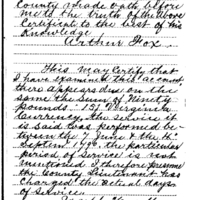 County made oath before
me to the truth of the above
Certificate to the best of his
Knowledge
Arthur Fox.
This May Certify that
I have examined this account
there appears due on the
same the Sum of Ninety
Pounds. 151 Virginia
Currency, the service it
is said was performed be-
tween the 7 June & the
Septem 1790. the particular
period of Service is not
mentioned I therefore presume
the County Lieutenant has
Charged the actual days
of Service